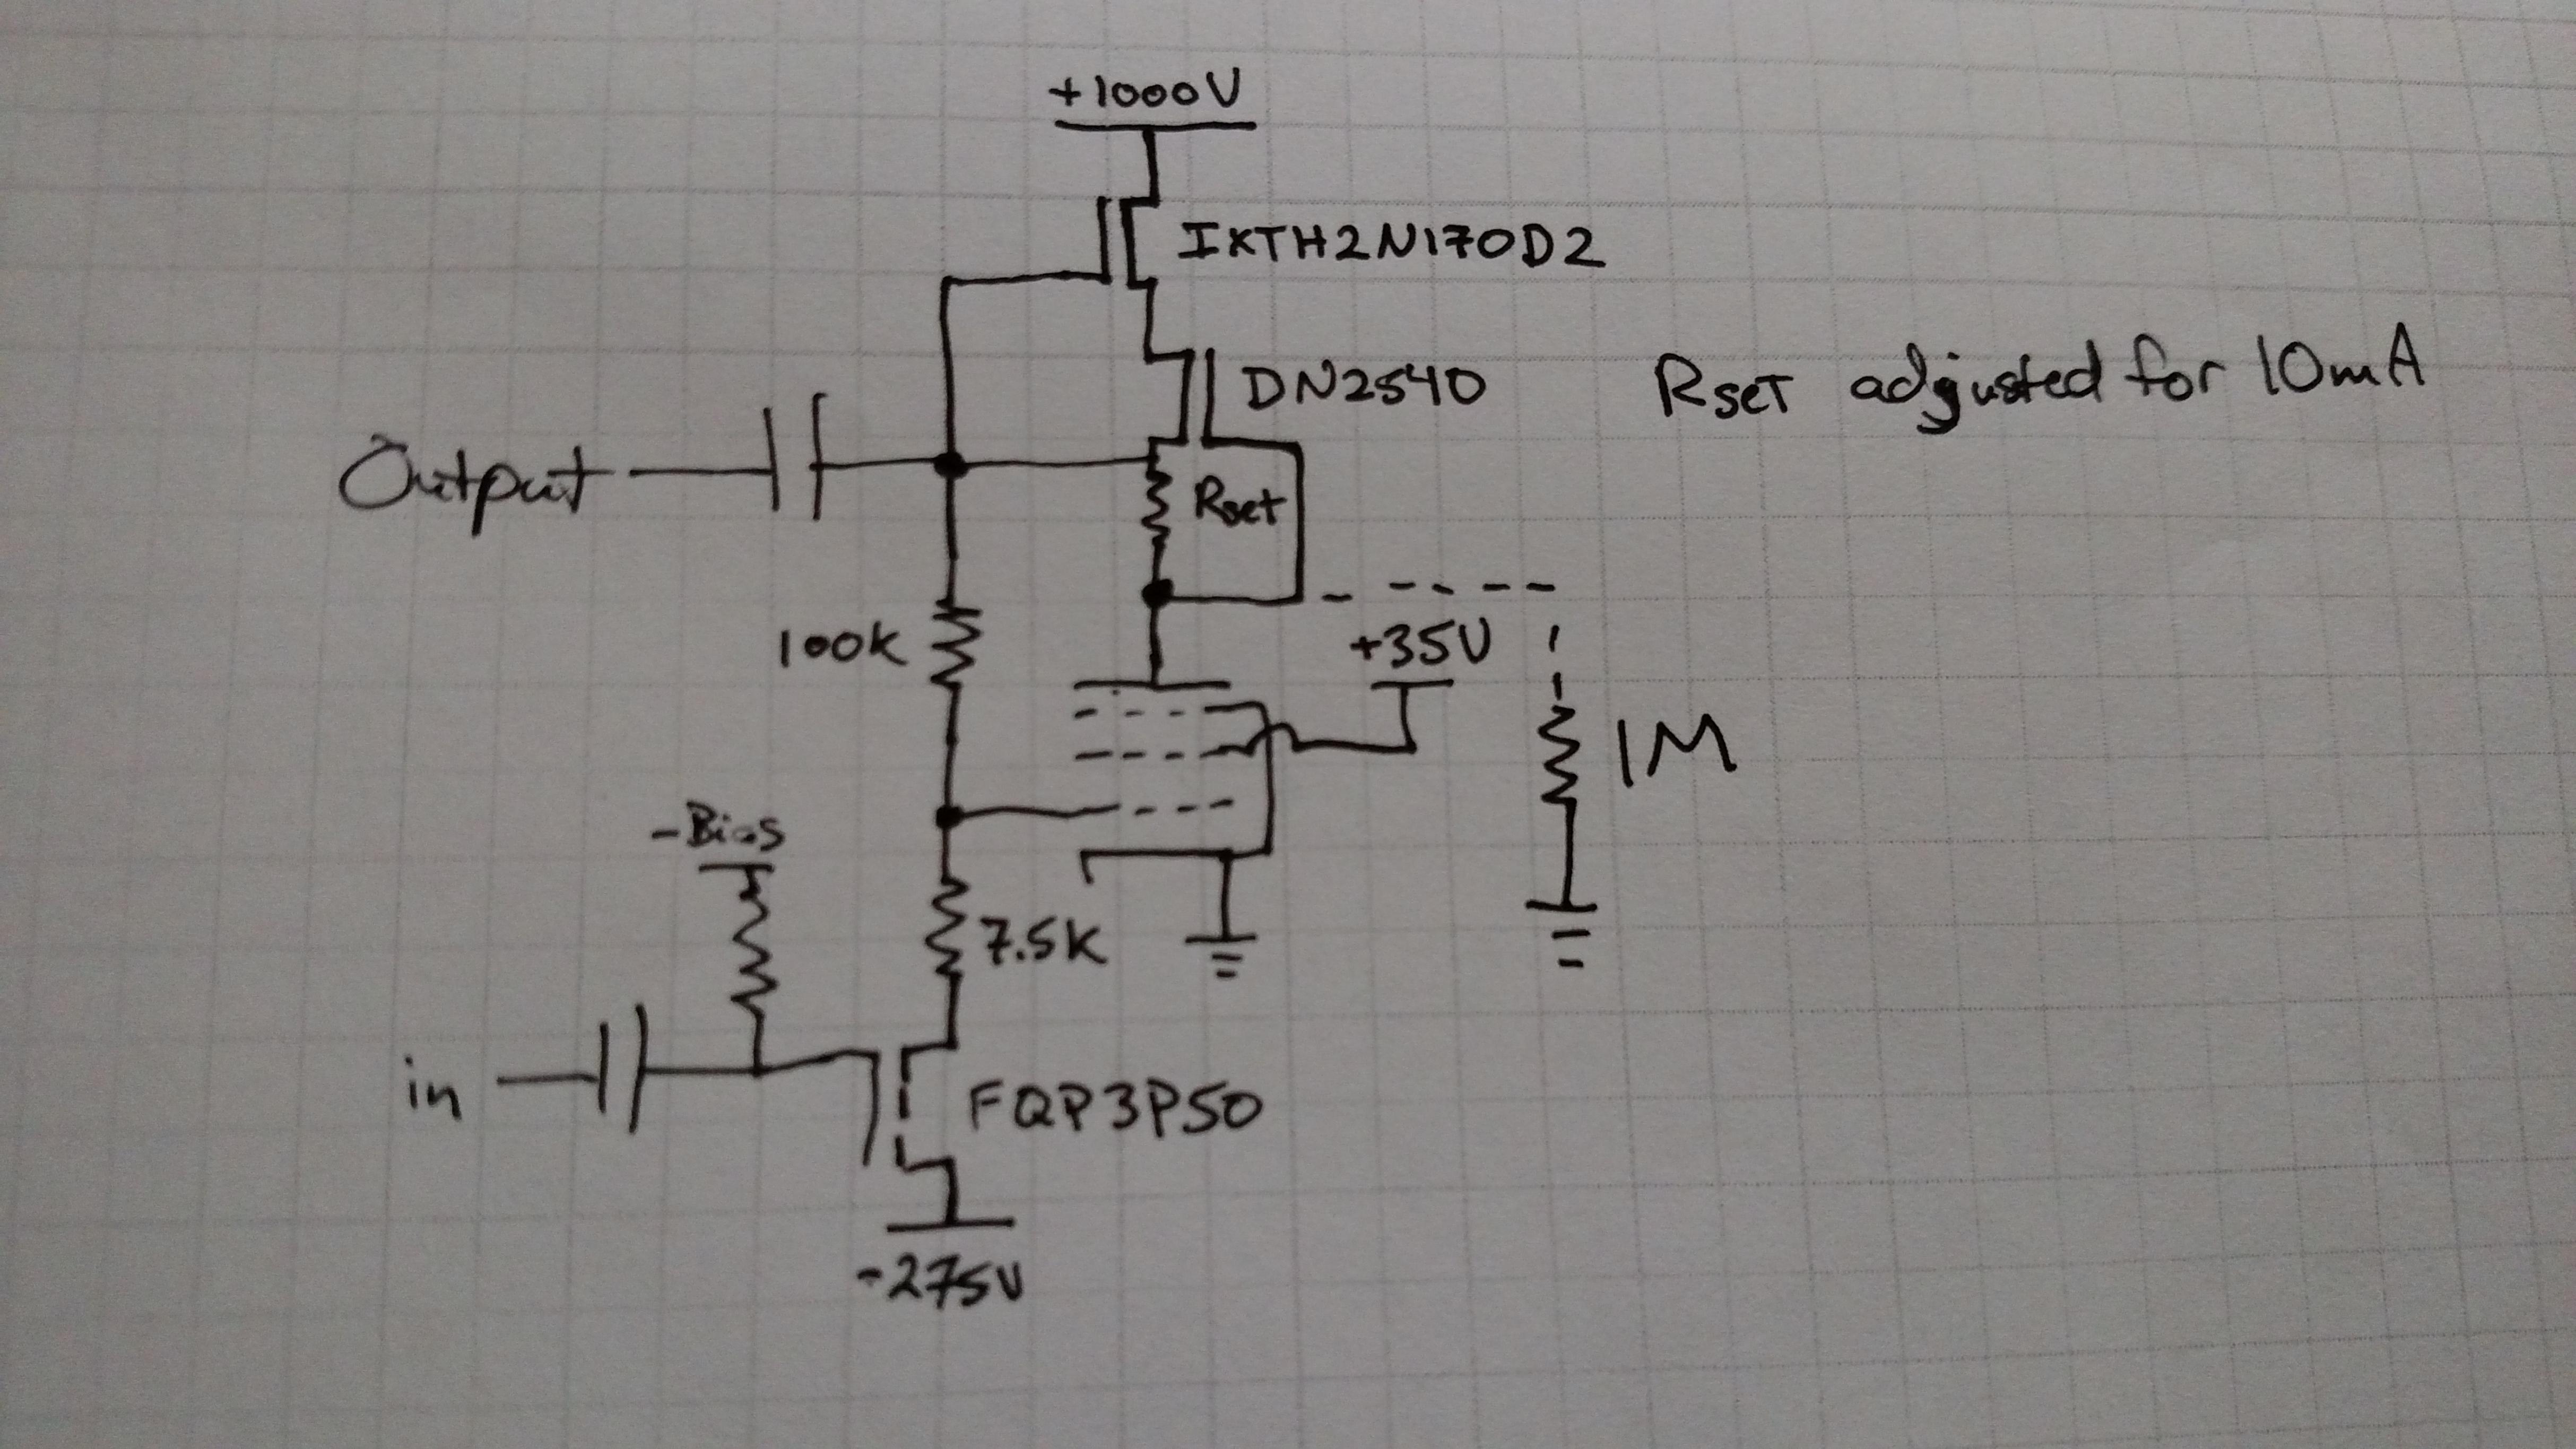 +1000V
IXTH2N170D2
DN2540
Rset adjusted for 10mA
Output
Rset
100k
+35V
1M
-Bias
7.5K
in
FQP3P50
-275V